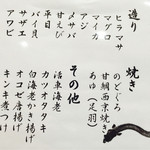 造り
ヒラマサ
マグロ
マイカ
アジ
甘えび
メサバ
平目
バイ貝
アワビ
サザエ
焼き
のどぐろ
甘鯛西京焼き
あゆ(足羽)
その他
活車海老
カツオタタキ
白海老かき揚げ
オコゼ唐揚げ
キンキ煮つけ